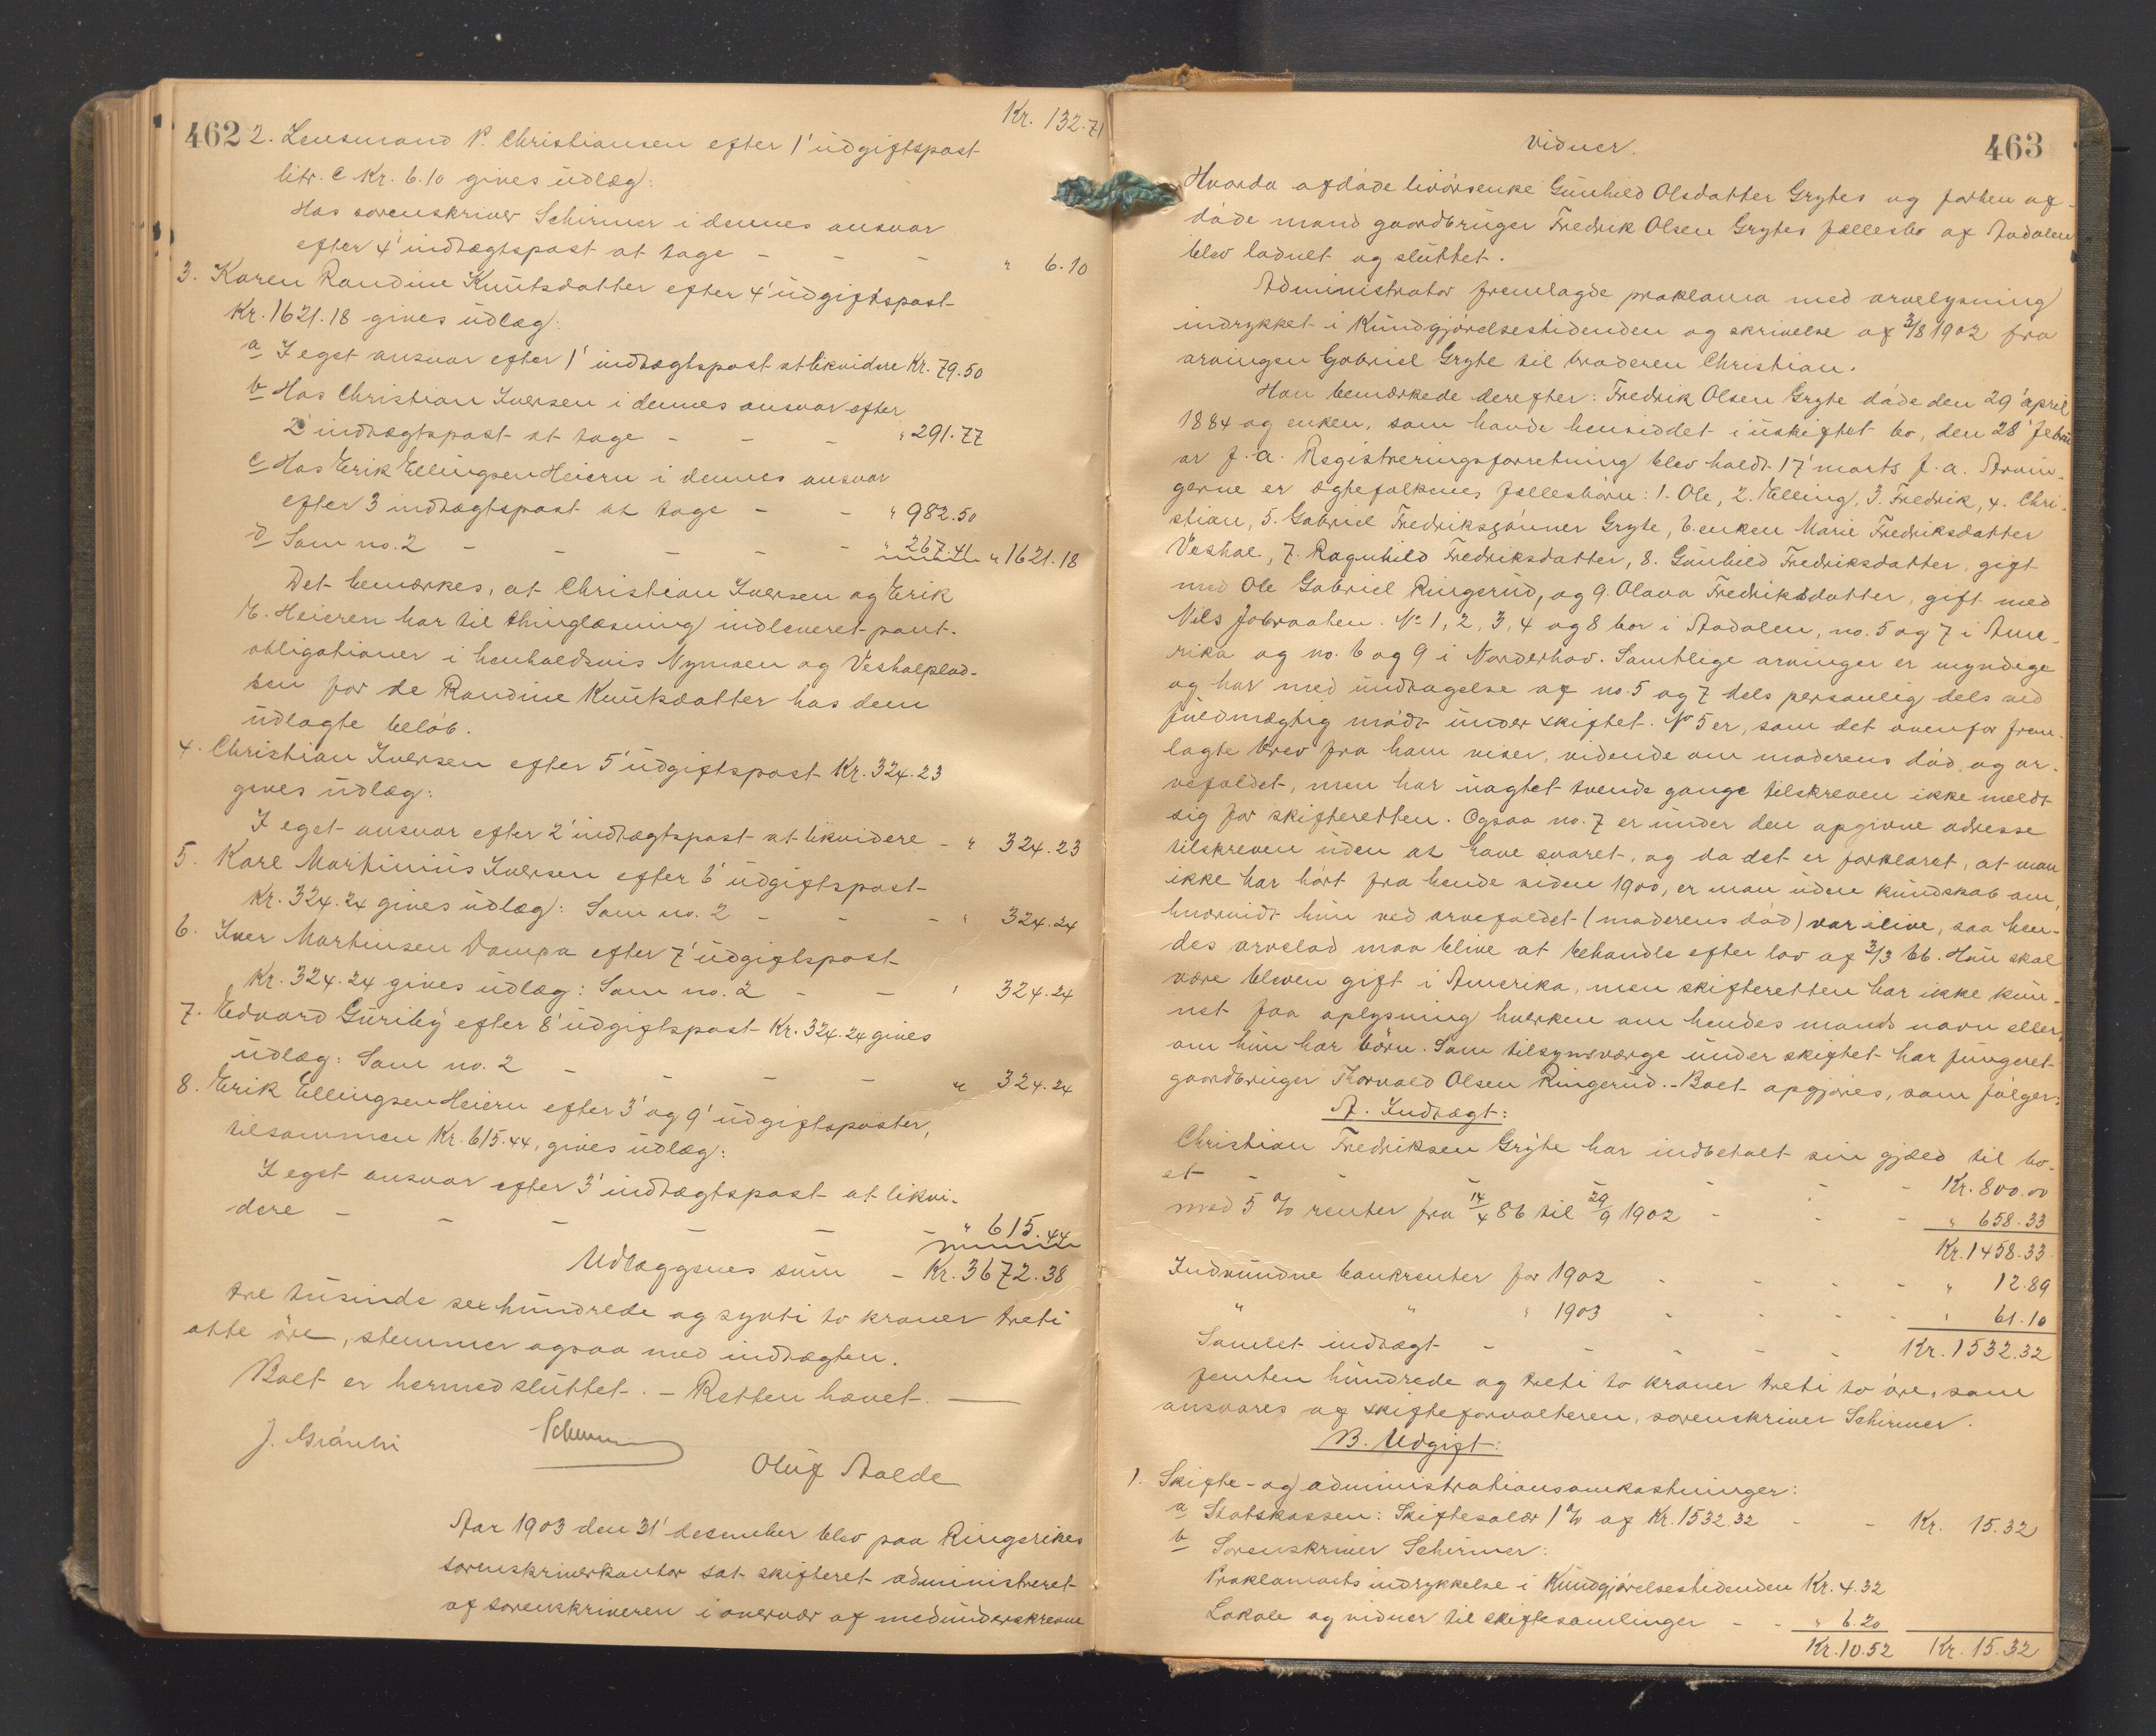 462
Kr. 132.71
2. Lensmand P. Christiansen efter 1' udgiftspost
litr. c Kr. 6.10 gives udlæg:
Hos sorenskriver Schirmer i dennes ansvar
efter 4' indtægtspost at tage - - - " 6.10
3. Karen Randine Knutsdatter efter 4' udgiftspost
Kr. 1621.18 gives udlæg:
a I eget ansvar efter 1' indtægtspost at likvidere Kr. 79.50
b Hos Christian Iversen i dennes ansvar efter
2' indtægtspost at tage - - - " 291.77
c Hos Erik Ellingsen Heiern i dennes ansvar
efter 3 indtægtspost at tage - - " 982.50
d Som no. 2 - - - - - " 267.41 " 1621.18
Det bemærkes, at Christian Iversen og Erik
E. Heieren har til thinglæsning indleveret pant-
obligationer i henholdsvis Nymoen og Vesholplad-
sen for de Randine Knutsdatter hos dem
udlagte beløb.
4. Christian Iversen efter 5' udgiftspost Kr. 324.23
gives udlæg:
I eget ansvar efter 2' indtægtspost at likvidere - " 324.23
5. Karl Martinius Iversen efter 6' udgiftspost
Kr. 324.24 gives udlæg: Som no. 2 - - - " 324.24
6. Iver Martinsen Dampa efter 7' udgiftspost
Kr. 324.24 gives udlæg: Som no. 2 - - " 324.24
7. Edvard Guriby efter 8' udgiftspost Kr. 324.24 gives
udlæg: Som no. 2 - - - - " 324.24
8. Erik Ellingsen Heiern efter 3' og 9' udgiftsposter,
tilsammen Kr. 615.44, gives udlæg:
I eget ansvar efter 3' indtægtspost at likvi-
dere - - - - - - " 615.44
Udlæggenes sum - Kr. 3672.38
tre tusinde sex hundrede og sytti to kroner treti
otte øre, stemmer ogsaa med indtægten.
Boet er hermed sluttet. - Retten hævet. -
J. Gránli Schirmer
Oluf Aalde
Aar 1903 den 31' desember blev paa Ringerikes
sorenskriverkontor sat skifteret administreret
af sorenskriveren i overvær af medunderskrevne
463
vidner.
Hvorda afdøde livørsenke Gunhild Olsdatter Grytes og forhen af-
døde mand gaardbruger Fredrik Olsen Grytes fællesbo af Aadalen
blev ladnet og sluttet.
Administrator fremlagde proklama med arvelysning
indrykket i Kundgjørelsestidenden og skrivelse af 3/8 1902 fra
arvingen Gabriel Gryte til broderen Christian.
Han bemærkede derefter: Fredrik Olsen Gryte døde den 29' april
1884 og enken, som havde hensiddet i uskiftet bo, den 28' febru
ar f. a. Registreringsforretning blev holdt 17' marts f. a. Arvin-
gerne er ægtefolkenes fællesbørn: 1. Ole, 2. Elling, 3. Fredrik, 4. Chri-
stian, 5. Gabriel Fredrikssønner Gryte, 6. enken Marie Fredriksdatter
Veshol, 7. Ragnhild Fredriksdatter, 8. Gunhild Fredriksdatter, gift
med Ole Gabriel Ringerud, og 9. Olava Fredriksdatter, gift med
Nils Jobraaten. No 1, 2, 3, 4 og 8 bor i Aadalen, no. 5 og 7 i Ame-
rika og no. 6 og 9 i Norderhov. Samtlige arvinger er myndige
og har med undtagelse af no. 5 og 7 dels personlig dels ved
fuldmægtig mødt under skiftet. No 5 er, som det ovenfor frem-
lagte brev fra ham viser, vidende om moderens død og ar-
vefaldet, men har uagtet tvende gange tilskreven ikke meldt
sig for skifteretten. Ogsaa no. 7 er under den opgivne adresse
tilskreven uden at have svaret, og da det er forklaret, at man
ikke har hørt fra hende siden 1900, er man uden kundskab om,
hvorvidt hun ved arvefaldet (moderens død) var ilive, saa hen-
des arvelod maa blive at behandle efter lov af 3/3 66. Hun skal
være bleven gift i Amerika, men skifteretten har ikke kun-
net faa oplysning hverken om hendes mands navn eller,
om hun har børn. Som tilsynsværge under skiftet har fungeret
gaardbruger Thorvald Olsen Ringerud. - Boet opgjøres, som følger:
A. Indtægt:
Christian Fredriksen Gryte har indbetalt sin gjæld til bo-
et - - - - - Kr. 800.00
med 5 % renter fra 14/4 86 til 29/9 1902 - - - " 658.33
Kr. 1458.33
Indvundne bankrenter for 1902 - - - - " 12.89
" " " 1903 - - - - " 61.10
Samlet indtægt - - - - - Kr. 1532.32
femten hundrede og treti to kroner treti to øre, som
ansvares af skifteforvalteren, sorenskriver Schirmer.
B. Udgift:
1. Skifte- og administrationsomkostninger:
a Statskassen: Skiftesalær 1 % af Kr. 1532.32 - - Kr. 15.32
b Sorenskriver Schirmer:
Proklamaets indrykkelse i Kundgjørelsestidenden Kr. 4.32
Lokale og vidner til skiftesamlinger - - " 6.20
Kr. 10.52 Kr. 15.32